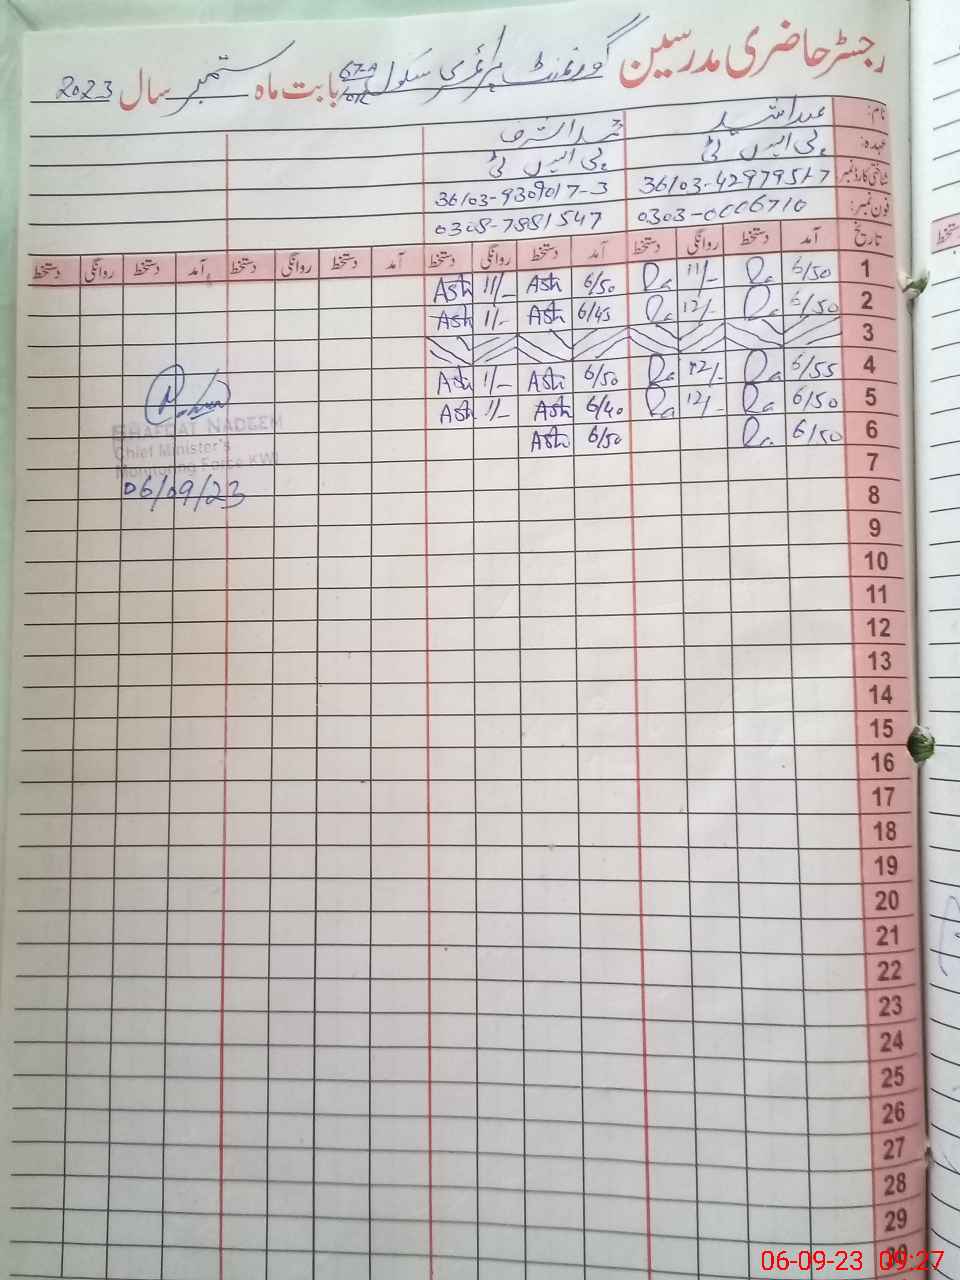 رجسٹر حاضری مدرسین گورنمنٹ پرائمری سکول بابت ماہ ستمبر سال 2023
نام:
محمد اشرف
عہدہ: پی ایس ٹی پی ایس ٹی
شناختی کارڈ نمبر 36103-4297951-7 36103-9309017-3
فون نمبر: 0303-0006710 0308-7881547
تاریخ آمد دستخط روانگی دستخط آمد دستخط روانگی دستخط آمد دستخط روانگی دستخط آمد دستخط روانگی دستخط
1 6/50 Ra 11/- Ra 6/50 Ash 11/- Ash
2 6/50 Ra 12/- Ra 6/45 Ash 11/- Ash
3
4 6/55 Ra 12/- Ra 6/50 Ash 11/- Ash
5 6/50 Ra 12/- Ra 6/40 Ash 11/- Ash
6 6/50 Ra 6/50 Ash
7
8
9
10
11
12
13
14
15
16
17
18
19
20
21
22
23
24
25
26
27
28
29
30
NADEEM
Chief Minister's
Monitoring Force KWL
06/09/23
06-09-23 09:27